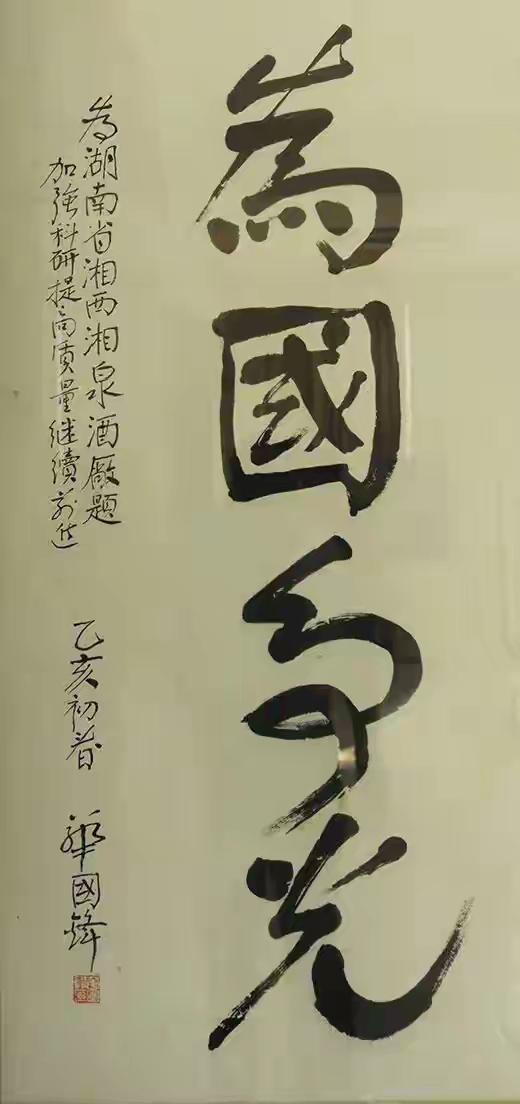 為國爭光
為湖南省湘西湘泉酒廠題
加強科研提高质量继續前进
乙亥初春
華國鋒